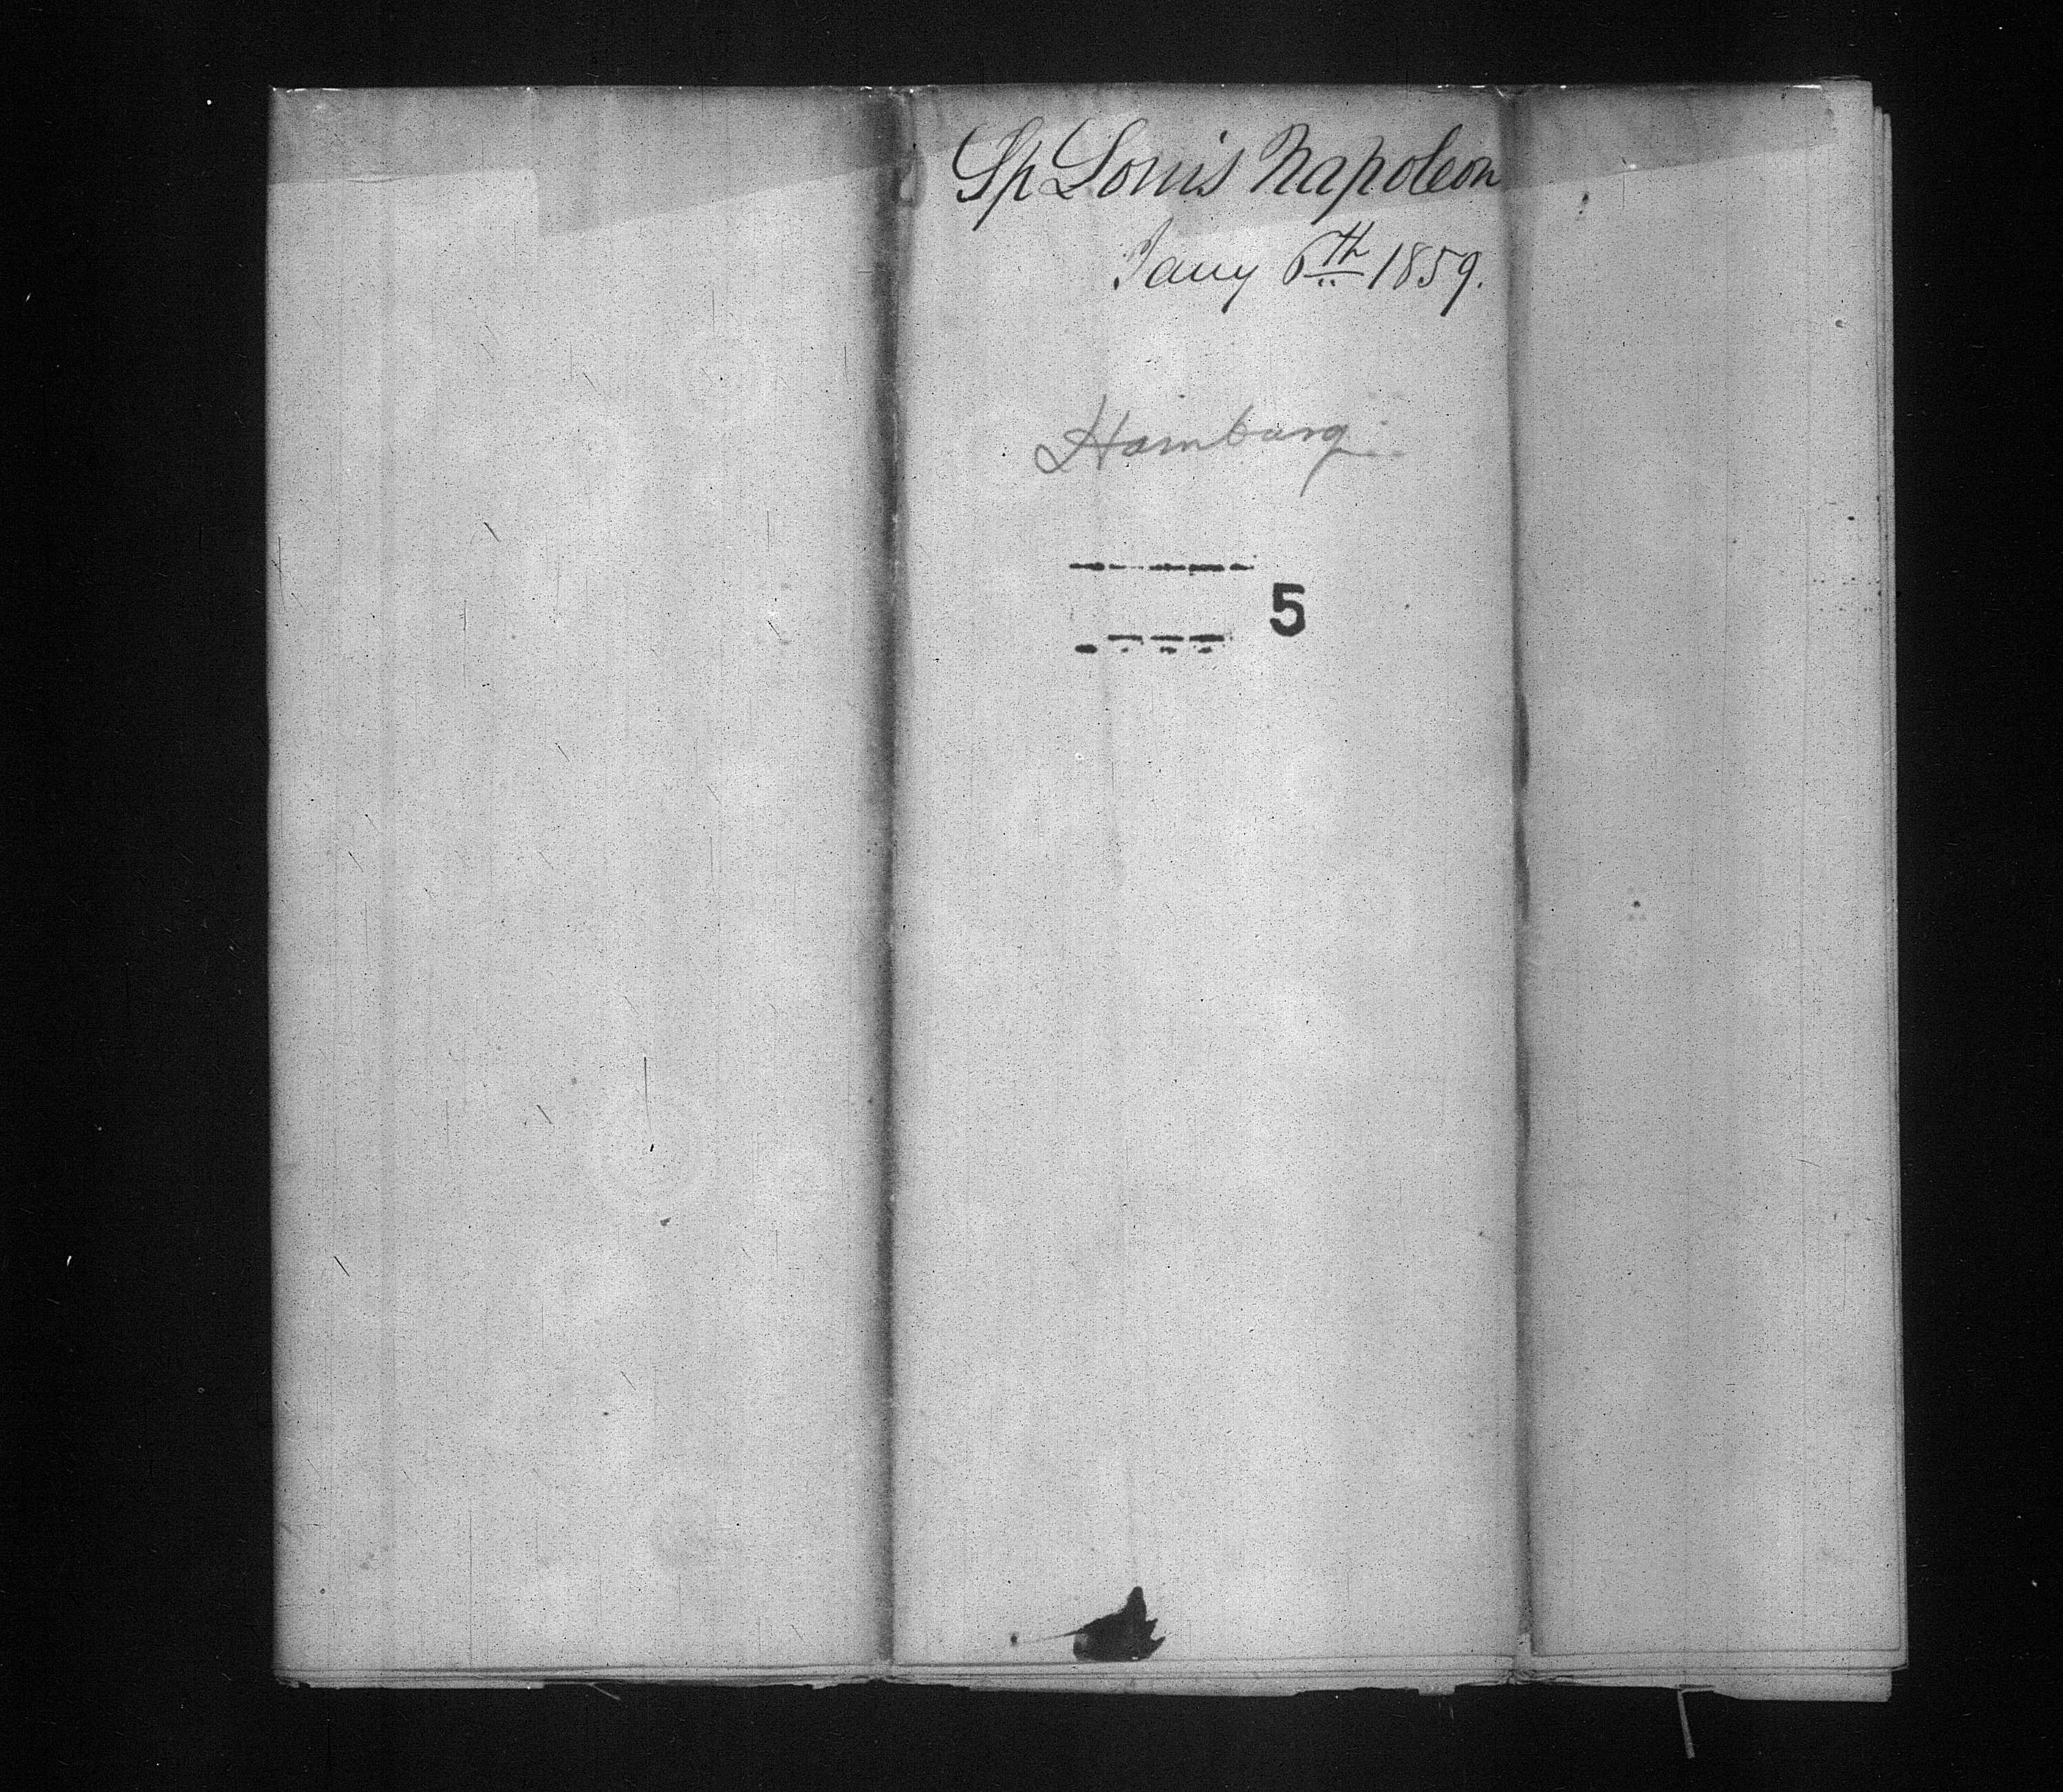 Sp Louis Napoleon
Jany 6th 1859.
Hamburg
5